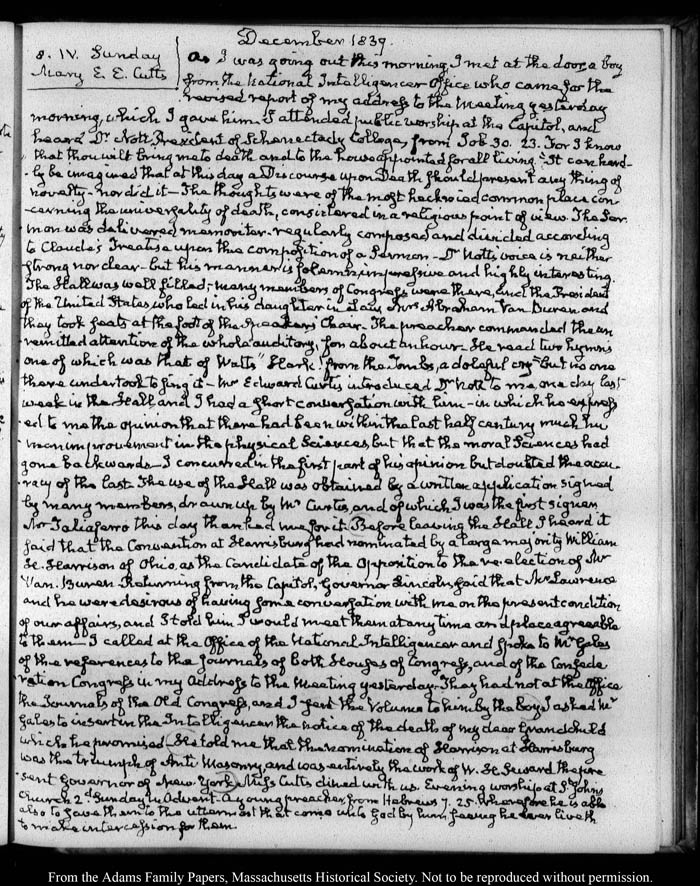 December 1839.
8. IV. Sunday
Mary E. E. Cutts
As I was going out this morning, I met at the door, a boy
from the National Intelligencer Office who came for the
revised report of my address to the Meeting yesterday
morning, which I gave him. I attended public worship at the Capitol, and
heard Dr. Nott President of Schenectady College, from Job 30. 23. For I know
that thou wilt bring me to death and to the house appointed for all living." It can hard-
ly be imagined that at this day a Discourse upon Death should present any thing of
novelty—nor did it—The thoughts were of the most hacknied common place con-
cerning the universality of death, considered in a religious point of view. The Ser-
mon was delivered memoriter. regularly composed and divided according
to Claude's Treatise upon the composition of a Sermon—Dr Nott's voice is neither
strong nor clear—but his manner is solemn, impressive and highly interesting.
The Hall was well filled; many members of Congress were there, and the President
of the United States, who led in his daughter in Law, Mrs Abraham Van Buren and
they took seats at the foot of the Speakers' Chair. The preacher commanded the un-
remitted attention of the whole auditory, for about an hour. He read two hymns
one of which was that of Watts "Hark! from the Tombs, a doleful cry" but no one
there undertook to sing it—Mr Edward Curtis introduced Dr Nott to me, one day last
week in the Hall, and I had a short conversation with him—in which he express-
ed to me the opinion that there had been within the last half century much hu-
man improvement in the physical Sciences but that the moral Sciences had
gone backwards—I concurred in the first part of his opinion but doubted the accu-
racy of the last. The use of the Hall was obtained by a written application signed
by many members, drawn up by Mr Curtis, and of which I was the first signer
Mr Taliaferro this day thanked me for it. Before leaving the Hall I heard it
said that the Convention at Harrisburg had nominated by a large majority William
H. Harrison of Ohio, as the Candidate of the Opposition to the re-election of Mr
Van. Buren. Returning from the Capitol, Governor Lincoln said that Mr Lawrence
and he were desirous of having some conversation with me on the present condition
of our affairs, and I told him I would meet them at any time and place agreeable
to them—I called at the Office of the National Intelligencer and spoke to Mr Gales
of the references to the Journals of both Houses of Congress, and of the Confede-
ration Congress in my Address to the Meeting yesterday. They had not at the Office
the Journals of the Old Congress, and I sent the Volume to him by the boy. I asked Mr
Gales to insert in the Intelligencer the notice of the death of my dear Grandchild
which he promised. He told me that the nomination of Harrison at Harrisburg
was the triumph of Anti Masonry, and was entirely the work of W. H. Seward the pre-
sent Governor of New. York. Miss Cutts dined with us. Evening worship at St. Johns
Church 2d Sunday in Advent. A young preacher, from Hebrews 7. 25. Wherefore he is able
also to save them to the uttermost that come unto God by him, seeing he ever liveth
to make intercession for them.
From the Adams Family Papers, Massachusetts Historical Society. Not to be reproduced without permission.